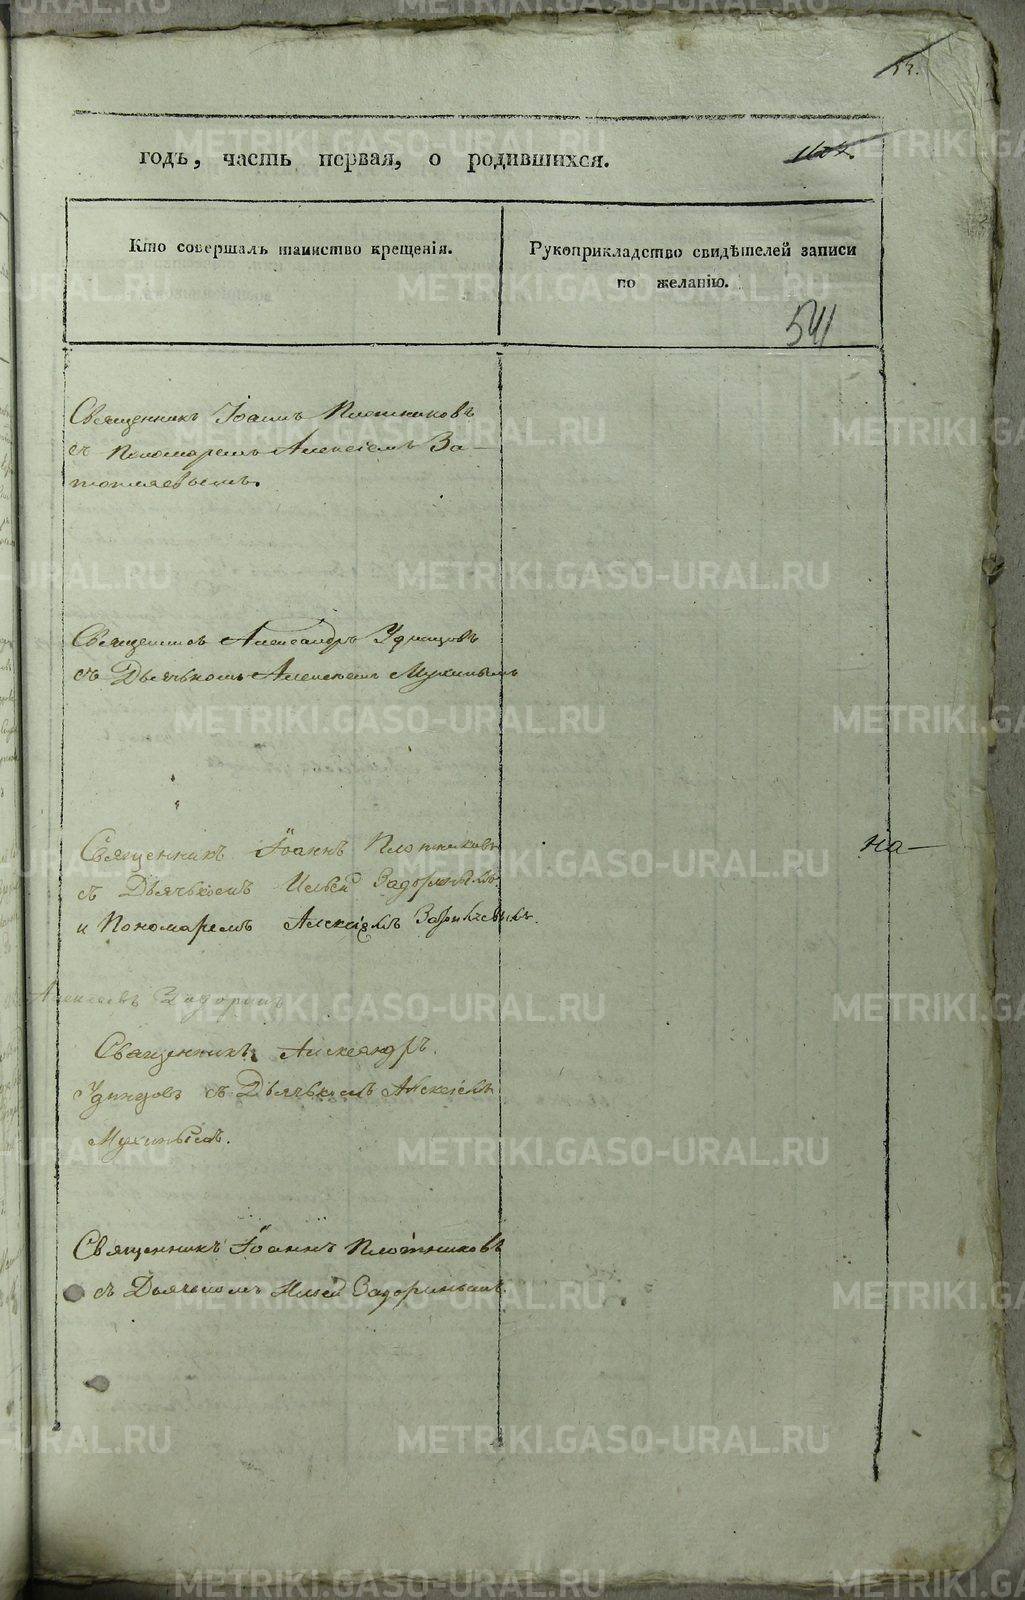 53.
годъ, часть первая, о родившихся.
Кто совершалъ таинство крещенія.
Рукоприкладство свидѣтелей записи
по желанію.
541
Священникъ Іоаннъ Плотниковъ
съ Пономаремъ Алексіемъ За-
Священникъ Александръ Удинцовъ
съ Дьячькомъ Алексіемъ Мухинымъ
Священникъ Іоаннъ Плотниковъ
съ Дьячькомъ Ильей Задоринымъ
и Пономаремъ Алексіемъ
на
Задорин
Священникъ Александръ
Удинцовъ съ Дьячькомъ Алексіемъ
Мухинымъ.
Священникъ Іоаннъ Плотниковъ
съ Дьячькомъ Ильей Задоринымъ.
METRIKI.GASO-URAL.RU